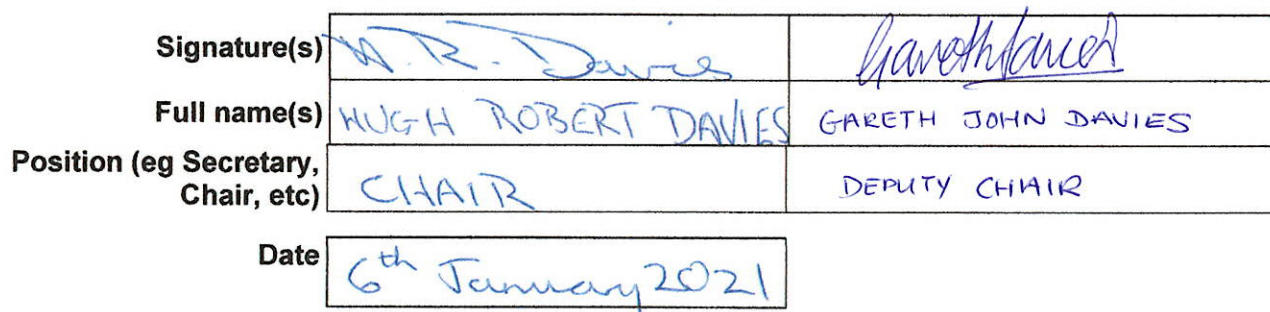 Signature(s) H. R. Davies Gareth Davies
Full name(s) HUGH ROBERT DAVIES GARETH JOHN DAVIES
Position (eg Secretary,
Chair, etc) CHAIR DEPUTY CHAIR
Date 6th January 2021